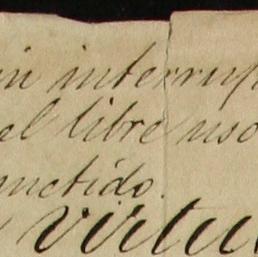 in interrup
el libre uso
metido.
virtu